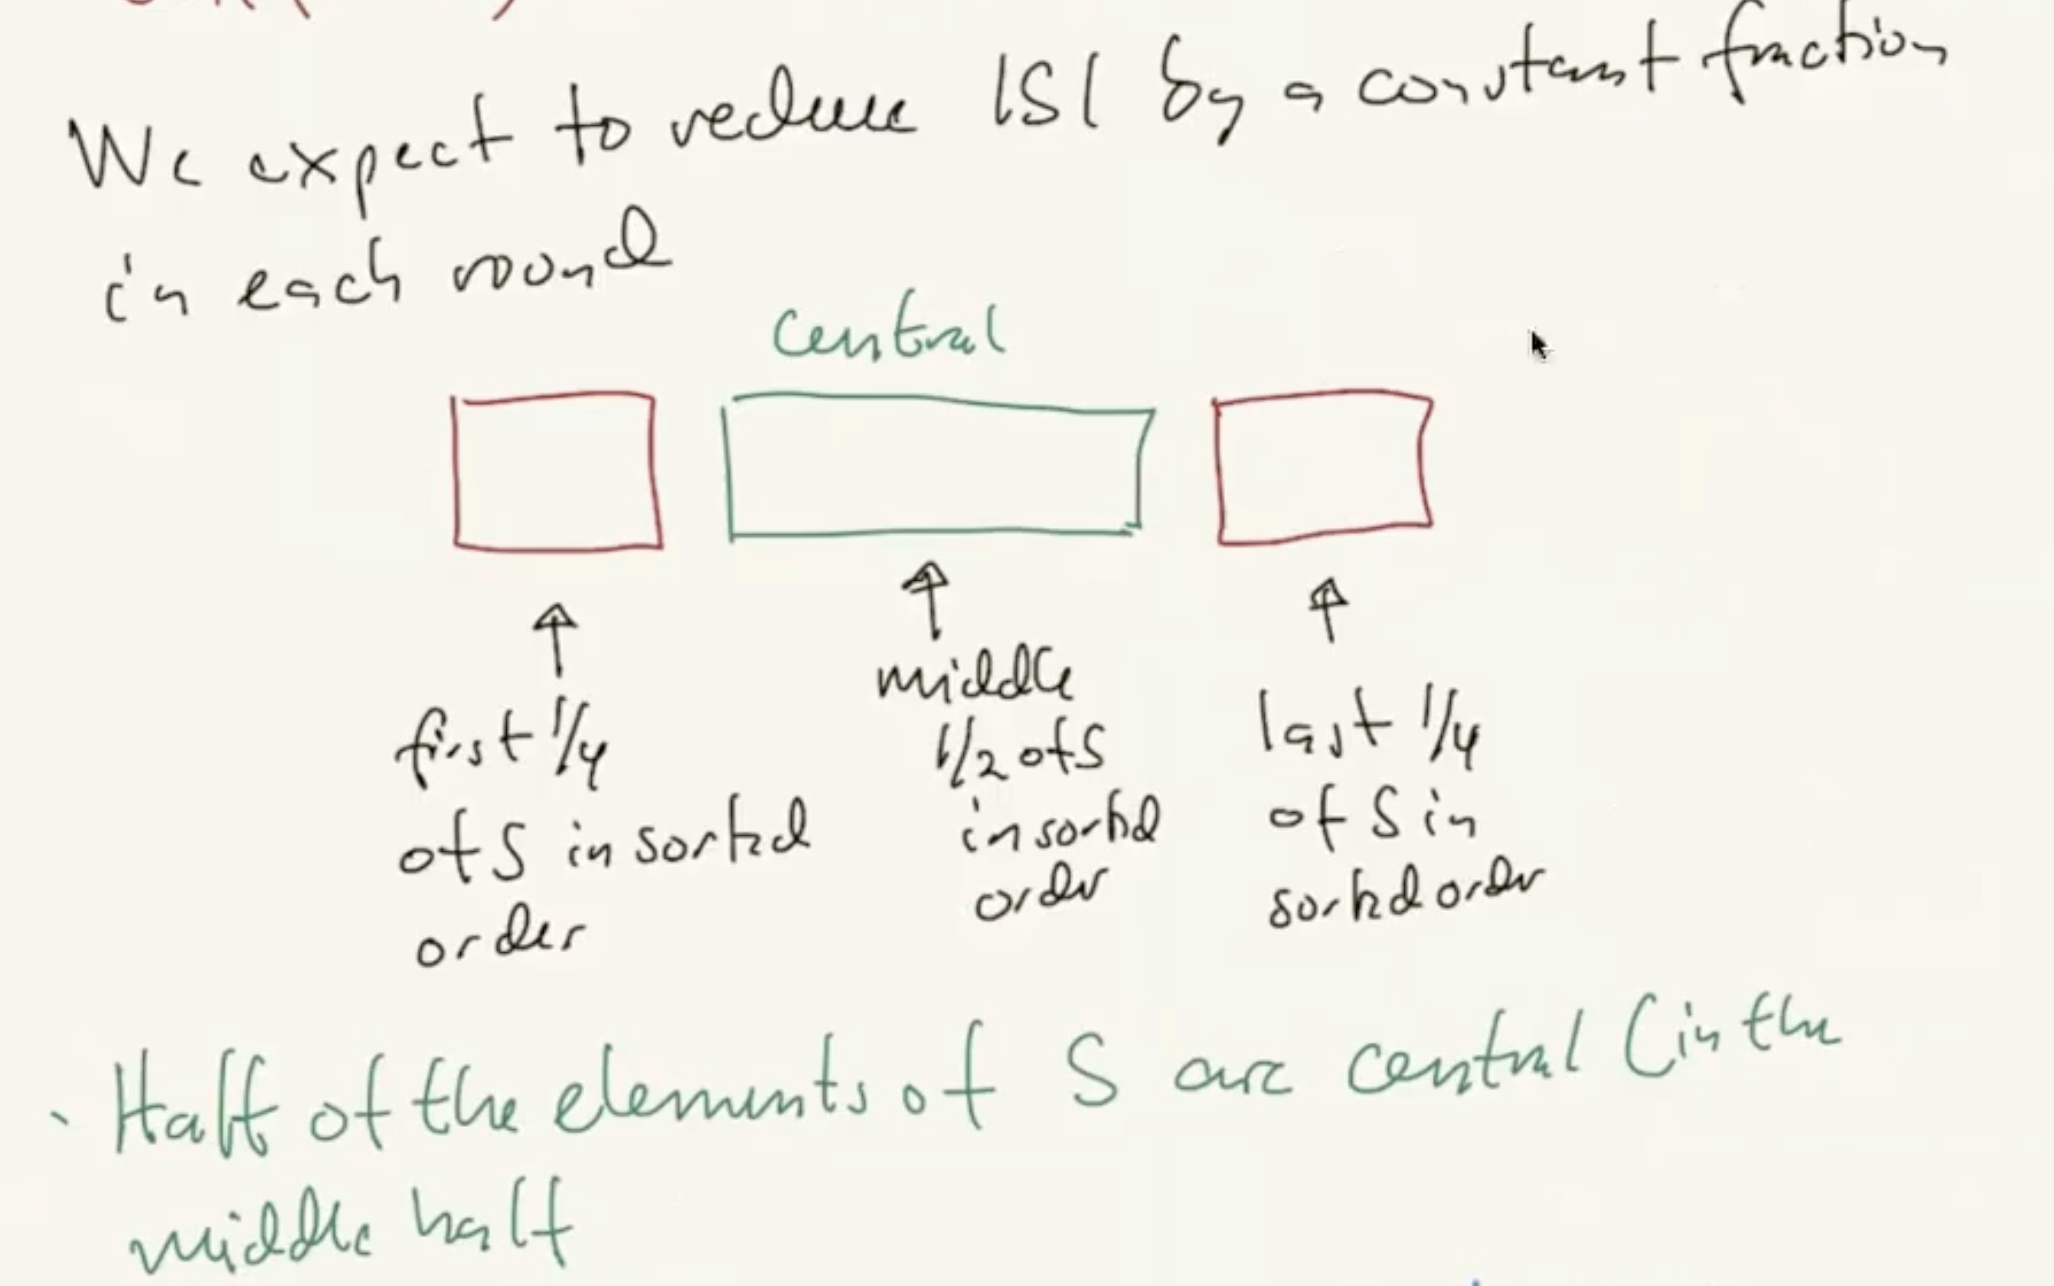 We expect to reduce |S| by a constant fraction
in each round
central
first 1/4
of S in sorted
order
middle
1/2 of S
in sorted
order
last 1/4
of S in
sorted order
· Half of the elements of S are central (in the
middle half